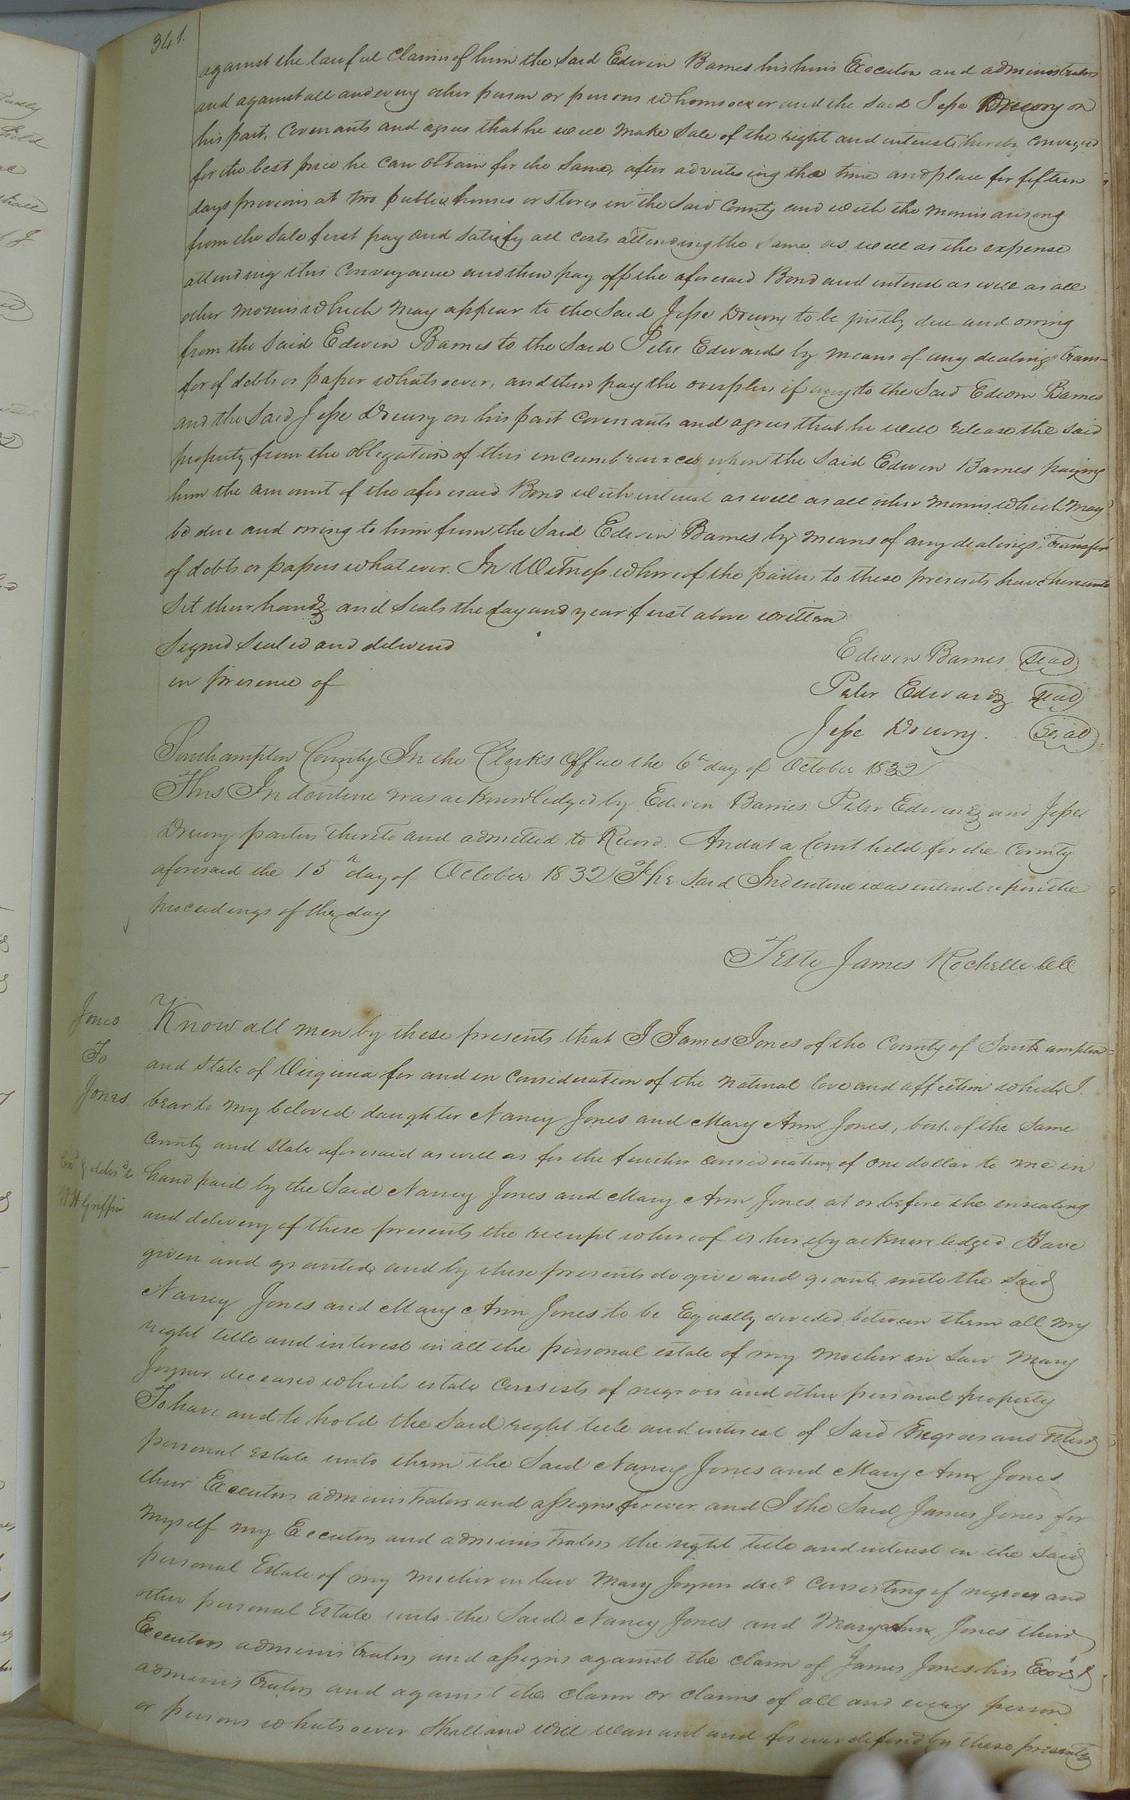 341.
against the lawful claims of him the said Edwin Barnes his heirs Executors and administrators
and against all and every other person or persons whomsoever and the said Jesse Drewry on
his part, Covenants and agrees that he will make sale of the right and interest hereby conveyed
for the best price he can obtain for the same, after advertising the time and place for fifteen
days previous at two public houses or stores in the said County and with the monies arising
from the sale first pay and satisfy all costs attending the same as well as the expense
attending this conveyance and then pay off the aforesaid Bond and interest as well as all
other monies which may appear to the said Jesse Drewry to be justly due and owing
from the said Edwin Barnes to the said Peter Edwards by means of any dealings trans-
fer of debts or paper whatsoever, and then pay the overplus if any to the said Edwin Barnes
and the said Jesse Drewry on his part covenants and agrees that he will release the said
property from the obligation of this incumbrances when the said Edwin Barnes paying
him the amount of the aforesaid Bond with interest as well as all other monies which may
be due and owing to him from the said Edwin Barnes by means of any dealings, Transfer
of debts or papers whatever. In Witness whereof the parties to these presents have hereunto
set their hands and seals the day and year first above written
Signed Sealed and delivered
in presence of
Edwin Barnes seal
Peter Edwards seal
Jesse Drewry. seal
Southampton County In the Clerks Office the 6th day of October 1832
This Indenture was acknowledged by Edwin Barnes Peter Edwards and Jesse
Drewry parties thereto and admitted to Record. And at a Court held for the County
aforesaid the 15th day of October 1832 The said Indenture was entered upon the
proceedings of the day
Teste James Rochelle
Jones
To
Jones
W H Griffin
Know all men by these presents that I James Jones of the County of Southampton
and State of Virginia for and in consideration of the natural love and affection which I
bear to my beloved daughter Nancy Jones and Mary Ann Jones, both of the same
County and State aforesaid as well as for the further consideration of one dollar to me in
hand paid by the said Nancy Jones and Mary Ann Jones at or before the ensealing
and delivery of these presents the receipt whereof is hereby acknowledged Have
given and granted and by these presents do give and grant unto the said
Nancy Jones and Mary Ann Jones to be Equally divided between them all my
right title and interest in all the personal estate of my mother in law Mary
Joyner deceased which estate consists of negroes and other personal property
To have and to hold the said right title and interest of said negroes and other
personal estate unto them the said Nancy Jones and Mary Ann Jones
their Executors administrators and assigns forever and I the said James Jones for
myself my Executors and administrators the right title and interest in the said
personal Estate of my mother in law Mary Joyner decd consisting of negroes and
other personal Estate unto the said Nancy Jones and Mary Ann Jones their
Executors administrators and assigns against the claim of James Jones his Exors &
administrators and against the claim or claims of all and every person
or persons whatsoever shall and will warrant and forever defend by these presents